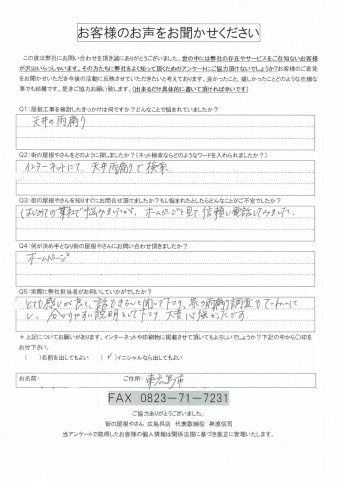 お客様のお声をお聞かせください
この度は弊社にお問い合わせを頂き誠にありがとうございました。世の中には弊社の存在やサービスをご存知ないお客様
が沢山いらっしゃいます。その方たちに弊社をよく知って頂くためのアンケートにご協力頂けないでしょうか?お客様のご意見
をお聞かせいただき今後の活動に反映させていきたいと考えております。良かったこと、嬉しかったことどのような些細な
事でも結構です。是非ご協力お願い致します。(出来るだけ具体的に書いて頂ければ幸いです)
Q1:屋根工事を検討したきっかけは何ですか?どんなことで悩まれていましたか?
天井の雨漏り
Q2:街の屋根やさんをどのように探しましたか?(ネット検索ならどのようなワードを入れられましたか?)
インターネットにて、天井雨漏りで検索
Q3:街の屋根やさんを知りすぐにお問合せ頂けましたか?もし悩まれたとしたらどんなことがご不安でしたか?
はじめての業者で悩みましたが、ホームページを見て信頼し電話してみました。
Q4:何が決め手となり街の屋根やさんにお問い合わせ頂きましたか?
ホームページ
Q5:実際に弊社担当者がお伺いしていかがでしたか?
とても感じが良く、話もきちんと聞いて下さり、家の雨漏り調査も
し、分かりやすい説明をして下さり、大変心強かったです。
*上記についてお願いがあります。インターネットや印刷物に掲載させて頂いてもよろしいでしょうか?下記の中から○印を
お付下さい。
( )名前を出してもよい (✓)イニシャルなら出してもよい
お名前: ご住所: 東広島市
FAX 0823-71-7231
ご協力ありがとうございました。
街の屋根やさん 広島呉店 代表取締役 神渡信司
当アンケートで取得したお客様の個人情報は関係法規に基づき厳正に管理いたします。